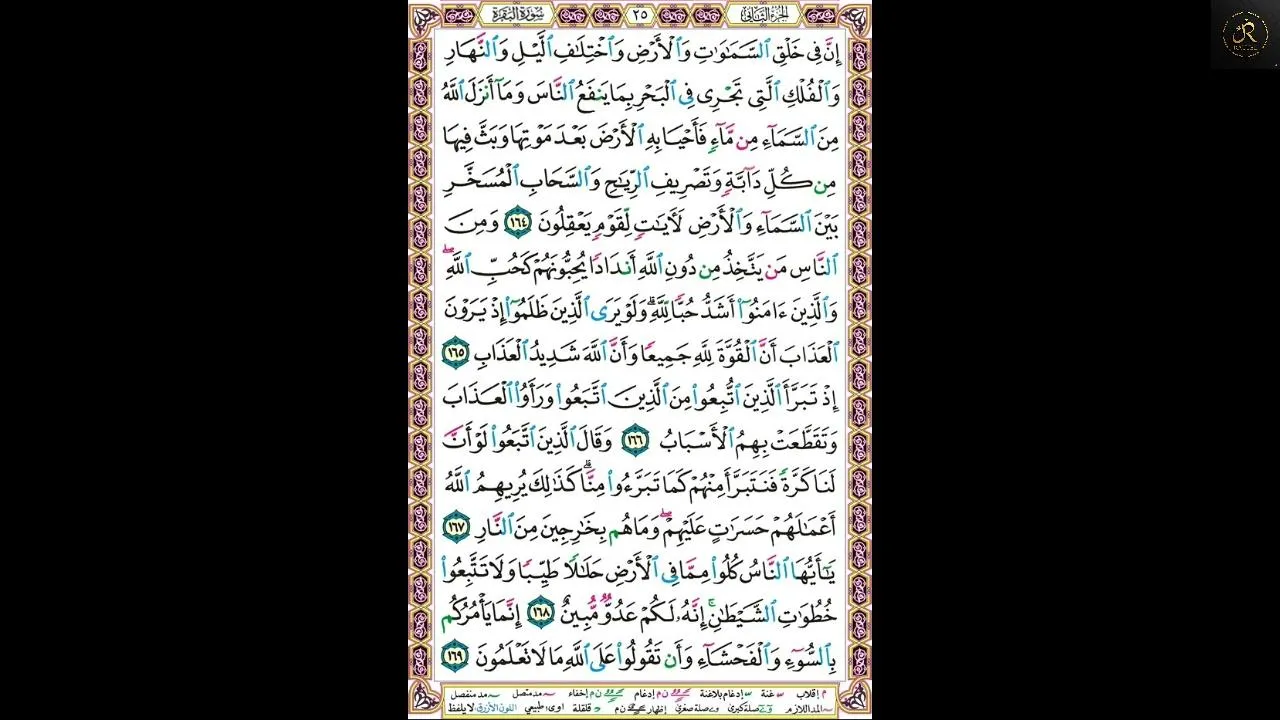 الجزء الثاني
٢٥
سورة البقرة
إِنَّ فِي خَلْقِ ٱلسَّمَٰوَٰتِ وَٱلْأَرْضِ وَٱخْتِلَٰفِ ٱلَّيْلِ وَٱلنَّهَارِ
وَٱلْفُلْكِ ٱلَّتِي تَجْرِي فِي ٱلْبَحْرِ بِمَا يَنفَعُ ٱلنَّاسَ وَمَآ أَنزَلَ ٱللَّهُ
مِنَ ٱلسَّمَآءِ مِن مَّآءٍ فَأَحْيَا بِهِ ٱلْأَرْضَ بَعْدَ مَوْتِهَا وَبَثَّ فِيهَا
مِن كُلِّ دَآبَّةٍ وَتَصْرِيفِ ٱلرِّيَٰحِ وَٱلسَّحَابِ ٱلْمُسَخَّرِ
بَيْنَ ٱلسَّمَآءِ وَٱلْأَرْضِ لَأٓيَٰتٍ لِّقَوْمٍ يَعْقِلُونَ ١٦٤ وَمِنَ
ٱلنَّاسِ مَن يَتَّخِذُ مِن دُونِ ٱللَّهِ أَندَادًا يُحِبُّونَهُمْ كَحُبِّ ٱللَّهِ ۖ
وَٱلَّذِينَ ءَامَنُوٓا۟ أَشَدُّ حُبًّا لِّلَّهِ ۗ وَلَوْ يَرَى ٱلَّذِينَ ظَلَمُوٓا۟ إِذْ يَرَوْنَ
ٱلْعَذَابَ أَنَّ ٱلْقُوَّةَ لِلَّهِ جَمِيعًا وَأَنَّ ٱللَّهَ شَدِيدُ ٱلْعَذَابِ ١٦٥
إِذْ تَبَرَّأَ ٱلَّذِينَ ٱتُّبِعُوا۟ مِنَ ٱلَّذِينَ ٱتَّبَعُوا۟ وَرَأَوُا۟ ٱلْعَذَابَ
وَتَقَطَّعَتْ بِهِمُ ٱلْأَسْبَابُ ١٦٦ وَقَالَ ٱلَّذِينَ ٱتَّبَعُوا۟ لَوْ أَنَّ
لَنَا كَرَّةً فَنَتَبَرَّأَ مِنْهُمْ كَمَا تَبَرَّءُوا۟ مِنَّا ۗ كَذَٰلِكَ يُرِيهِمُ ٱللَّهُ
أَعْمَٰلَهُمْ حَسَرَٰتٍ عَلَيْهِمْ ۖ وَمَا هُم بِخَٰرِجِينَ مِنَ ٱلنَّارِ ١٦٧
يَٰٓأَيُّهَا ٱلنَّاسُ كُلُوا۟ مِمَّا فِي ٱلْأَرْضِ حَلَٰلًا طَيِّبًا وَلَا تَتَّبِعُوا۟
خُطُوَٰتِ ٱلشَّيْطَٰنِ ۚ إِنَّهُۥ لَكُمْ عَدُوٌّ مُّبِينٌ ١٦٨ إِنَّمَا يَأْمُرُكُم
بِٱلسُّوٓءِ وَٱلْفَحْشَآءِ وَأَن تَقُولُوا۟ عَلَى ٱللَّهِ مَا لَا تَعْلَمُونَ ١٦٩
م إقلاب غنة إدغام بلاغنة ن م إدغام ن م إخفاء مد متصل مد منفصل
المد اللازم صلة كبرى صلة صغرى إظهار ن م قلقلة اوى طبيعي اللون الأزرق لا يلفظ